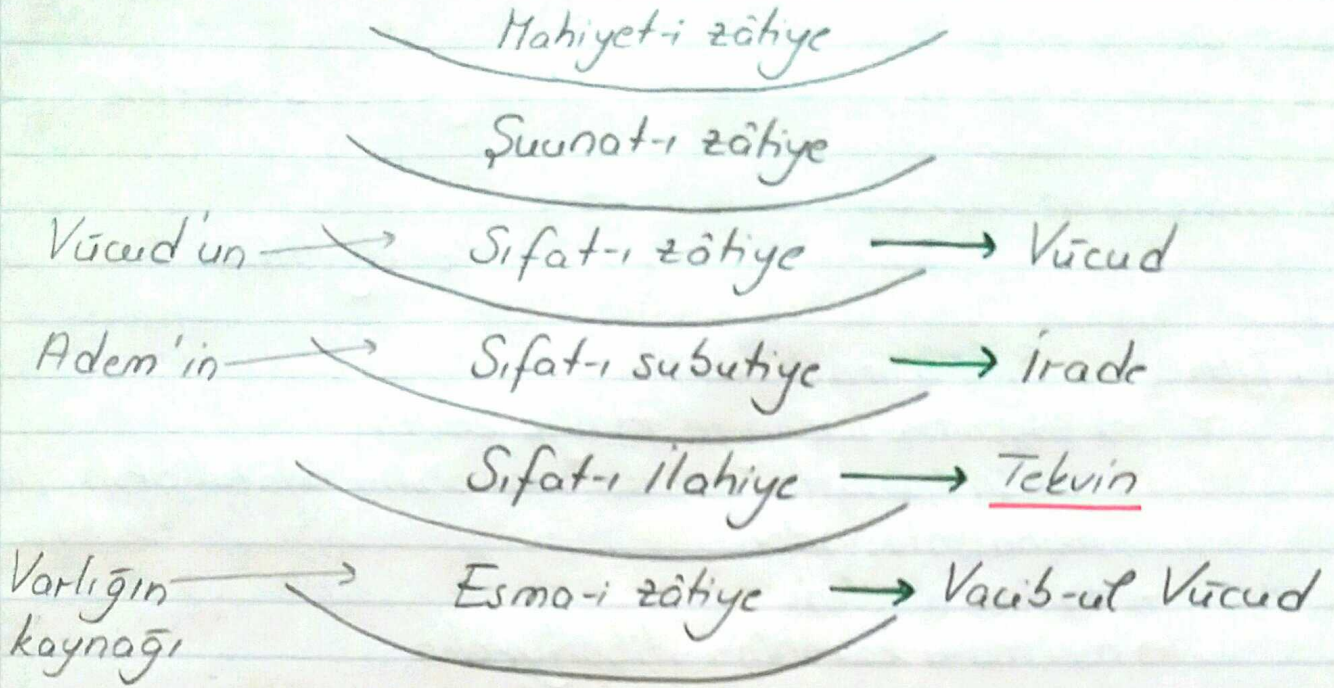 Mahiyet-i zâtiye
Şuunat-ı zâtiye
Vücud'un → Sıfat-ı zâtiye → Vücud
Adem'in → Sıfat-ı subutiye → İrade
Sıfat-ı İlahiye → Tekvin
Varlığın → Esma-i zâtiye → Vacib-ül Vücud
kaynağı